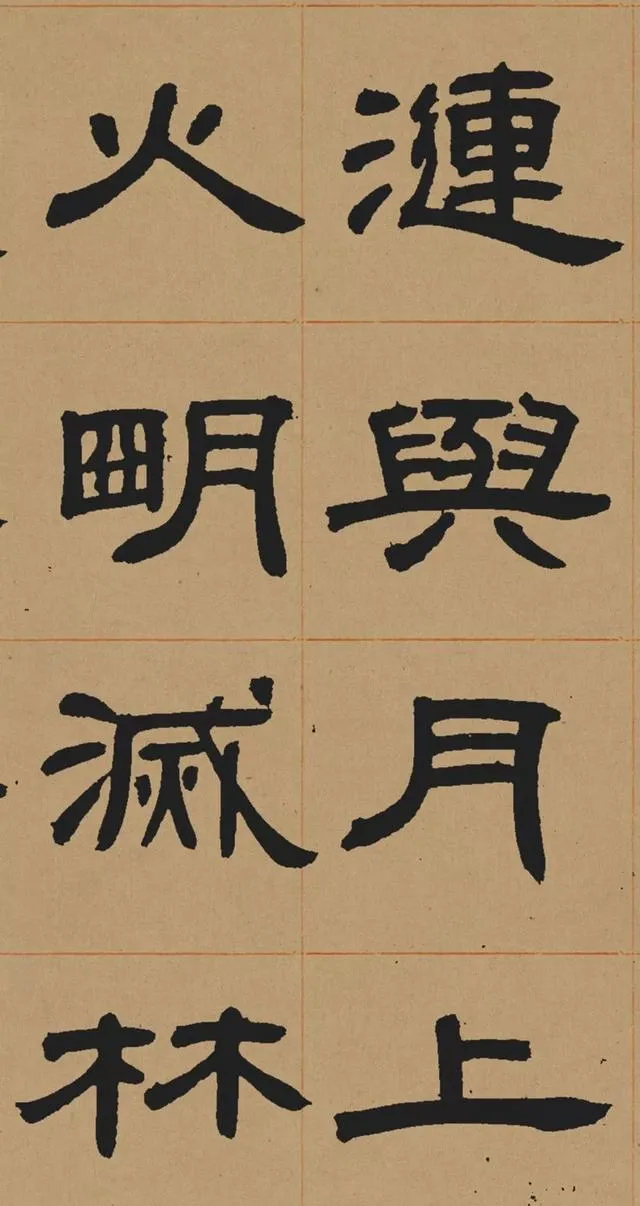 漣與月上
火明滅林